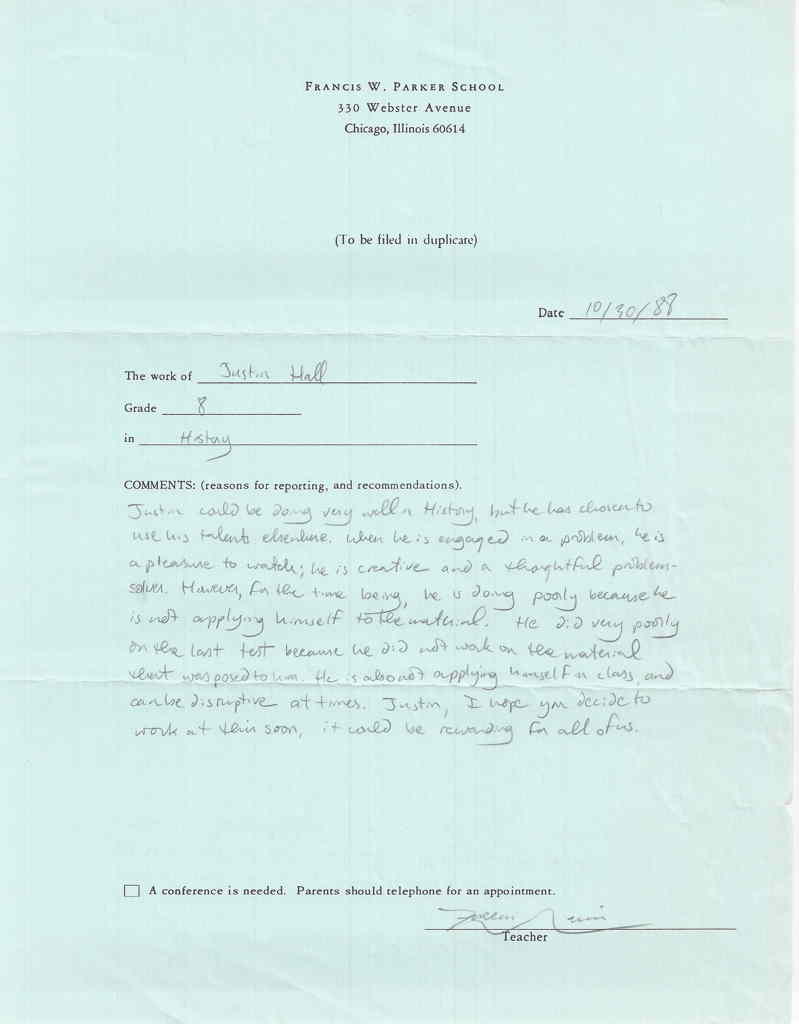 FRANCIS W. PARKER SCHOOL
330 Webster Avenue
Chicago, Illinois 60614
(To be filed in duplicate)
Date 10/30/88
The work of Justin Hall
Grade 8
in History
COMMENTS: (reasons for reporting, and recommendations).
Justin could be doing very well in History, but he has chosen to
use his talents elsewhere. When he is engaged in a problem, he is
a pleasure to watch; he is creative and a thoughtful problem-
solver. However, for the time being, he is doing poorly because he
is not applying himself to the material. He did very poorly
on the last test because he did not work on the material
that was posed to him. He is also not applying himself in class, and
can be disruptive at times. Justin, I hope you decide to
work at this soon, it could be rewarding for all of us.
A conference is needed. Parents should telephone for an appointment.
Teacher